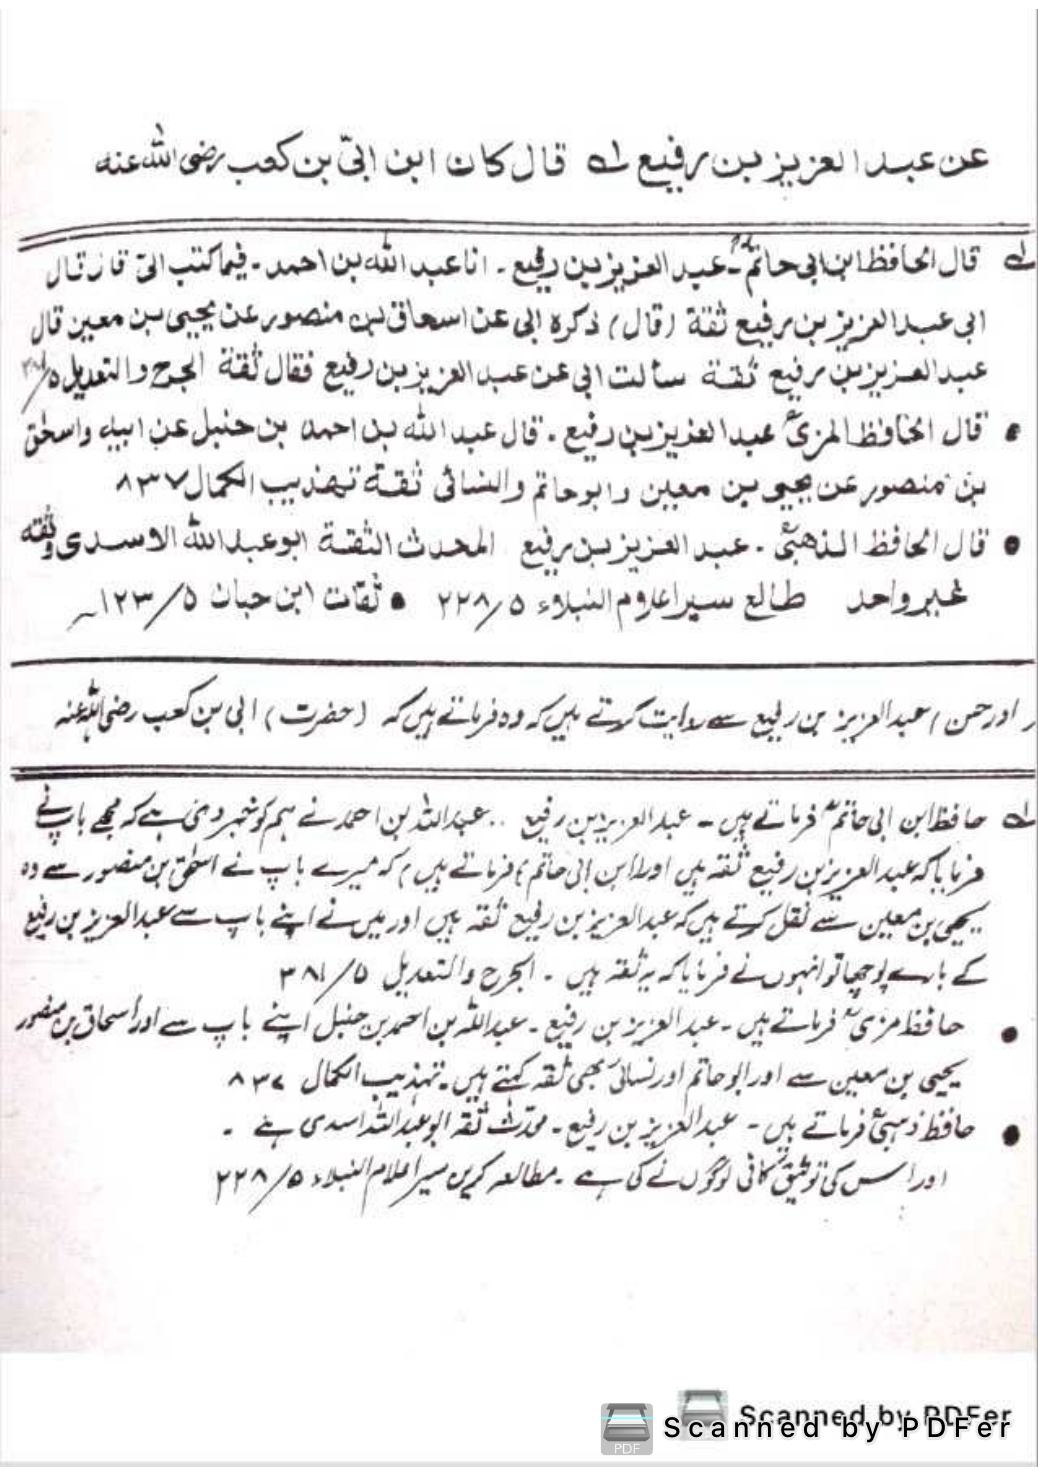 عن عبد العزيز بن رفيع لے قال كان ابن ابيّ بن كعب رضى الله عنه
لے قال الحافظ ابن ابى حاتمؒ۔ عبد العزيز بن رفيع۔ انا عبد الله بن احمد۔ فيما كتب الىّ قال قال
ابى عبد العزيز بن رفيع ثقة (قال) ذكره ابى عن اسحاق بن منصور عن يحيى بن معين قال
عبد العزيز بن رفيع ثقة سألت ابى عن عبد العزيز بن رفيع فقال ثقة الجرح والتعديل ٥/
● قال الحافظ المزىؒ عبد العزيز بن رفيع۔ قال عبد الله بن احمد بن حنبل عن ابيه واسحٰق
بن منصور عن يحيى بن معين وابو حاتم والنسائى ثقة تهذيب الكمال ٨٣٧
● قال الحافظ الذهبىؒ۔ عبد العزيز بن رفيع المحدث الثقة ابو عبد الله الاسدى وثقه
غير واحد طالع سير اعلام النبلاء ٥/٢٢٨ ● ثقات ابن حبان ٥/١٢٣
(اور حسن) عبدالعزیز بن رفیع سے روایت کرتے ہیں کہ وہ فرماتے ہیں کہ (حضرت) ابی بن کعب رضی اللہ عنہ
لے حافظ ابن ابی حاتمؒ فرماتے ہیں۔ عبدالعزیز بن رفیع .. عبداللہ بن احمد نے ہم کو خبر دی ہے کہ مجھے باپ نے
فرمایا کہ عبدالعزیز بن رفیع ثقہ ہیں اور (ابن ابی حاتم) فرماتے ہیں کہ میرے باپ نے اسحٰق بن منصور سے وہ
یحیی بن معین سے نقل کرتے ہیں کہ عبدالعزیز بن رفیع ثقہ ہیں اور میں نے اپنے باپ سے عبدالعزیز بن رفیع
کے بارے پوچھا تو انہوں نے فرمایا کہ یہ ثقہ ہیں۔ الجرح والتعدیل ۵/۳۸۱
● حافظ مزیؒ فرماتے ہیں۔ عبدالعزیز بن رفیع۔ عبداللہ بن احمد بن حنبل اپنے باپ سے اور اسحاق بن منصور
یحیی بن معین سے اور ابو حاتم اور نسائی بھی ثقہ کہتے ہیں۔ تہذیب الکمال ۸۳۷
● حافظ ذہبیؒ فرماتے ہیں۔ عبدالعزیز بن رفیع۔ محدث ثقہ ابو عبداللہ اسدی ہے۔
اور اس کی توثیق کافی لوگوں نے کی ہے۔ مطالعہ کریں سیر اعلام النبلاء ۵/۲۲۸
Scanned by PDFer
Scanned by PDFer
PDF